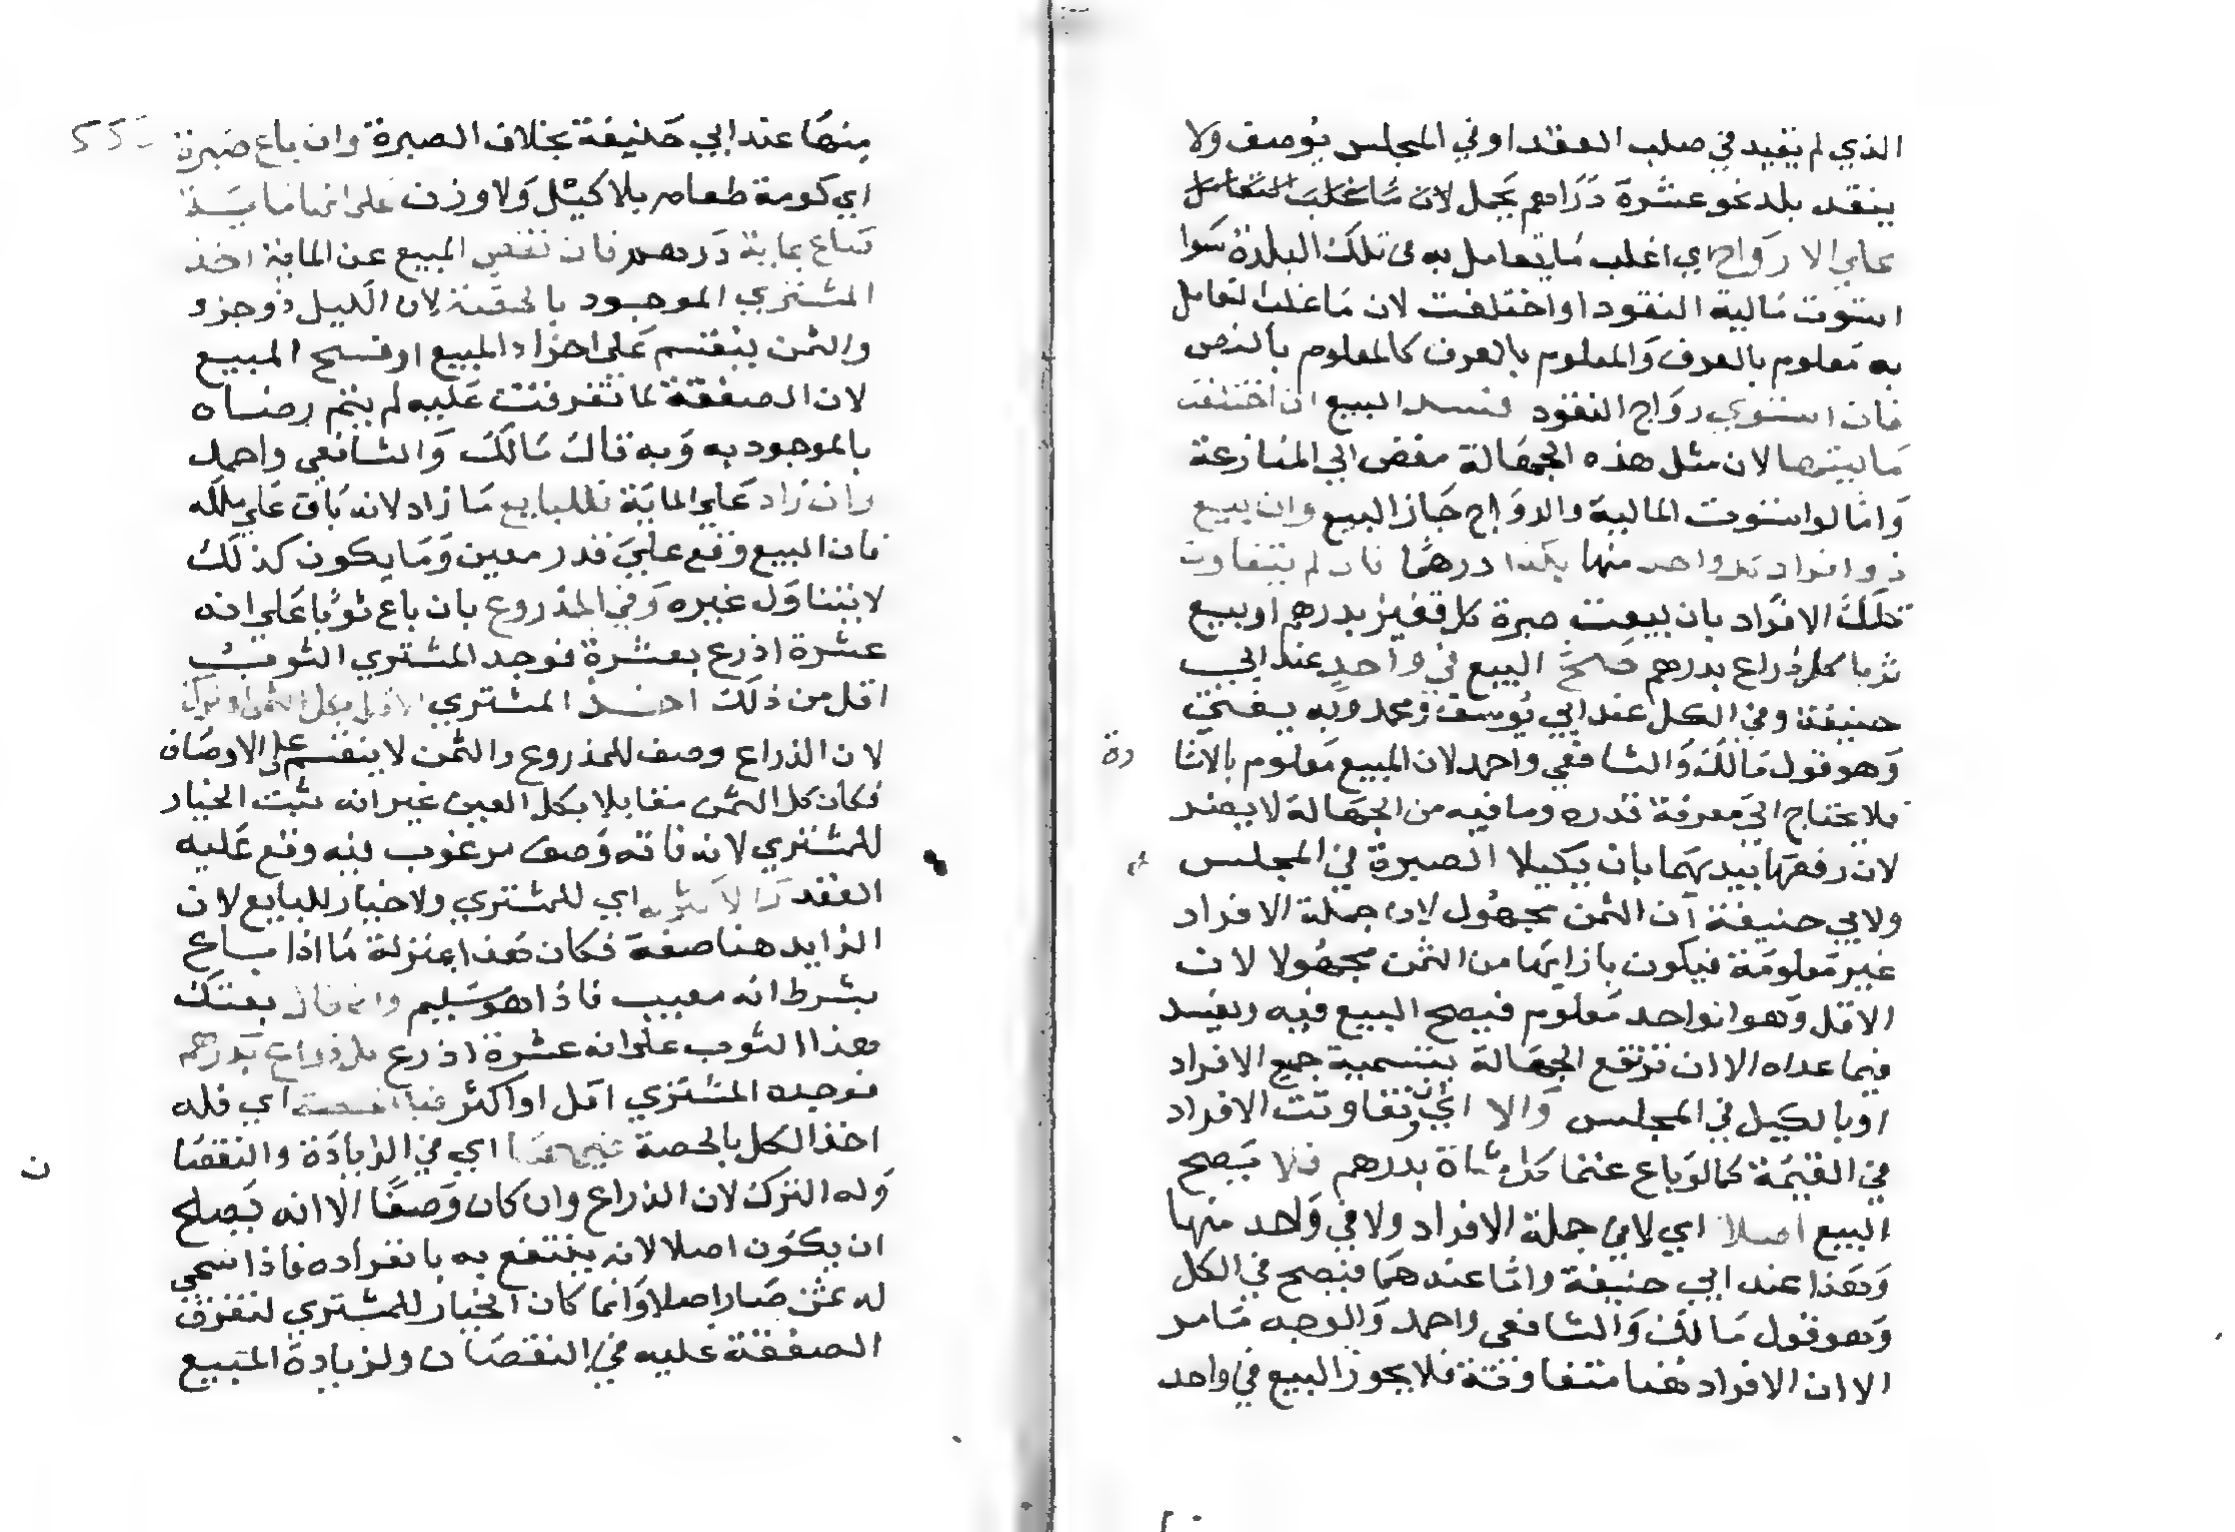 الذي لم يقيد في صلب العقد او في المجلس بوصف ولا
بنقد بلد نحو عشرة دراهم يحمل لان ما غلب التعامل
علي الا رواج اي اغلب ما يتعامل به في تلك البلدة سوا
استوت مالية النقود او اختلفت لان ما غلب التعامل
به معلوم بالعرف والمعلوم بالعرف كالمعلوم بالنص
فان استوي رواج النقود فسد البيع ان اختلفت
ماليتها لان مثل هذه الجهالة مفض الي المنازعة
واما لو استوت المالية والرواج جاز البيع وان بيع
ذو افراد كل واحد منها بكذا درهما فان لم يتفاوت
تلك الافراد بان بيعت صبرة كل قفيز بدرهم او بيع
ثوبا كل ذراع بدرهم صح البيع في واحد عند ابي
حنيفة وفي الكل عند ابي يوسف ومحمد وبه يفتي
وهو قول مالك والشافعي واحمد لان المبيع معلوم بالاشا
رة
فلا يحتاج الي معرفة قدره وما فيه من الجهالة لا يضر
لان رفعها بيديهما بان يكيلا الصبرة في المجلس
ولابي حنيفة ان الثمن مجهول لان جملة الافراد
غير معلومة فيكون بازايها من الثمن مجهولا لان
الاقل وهو الواحد معلوم فيصح البيع فيه ويفسد
فيما عداه الا ان ترتفع الجهالة بتسمية جميع الافراد
او بالكيل في المجلس والا اي ان تفاوتت الافراد
في القيمة كما لو باع غنما كل شاة بدرهم فلا يصح
البيع اصلا اي لا في جملة الافراد ولا في واحد منها
وهذا عند ابي حنيفة واما عندهما فيصح في الكل
وهو قول مالك والشافعي واحمد والوجه ما مر
الا ان الافراد هنا متفاوتة فلا يجوز البيع في واحد
منها عند ابي حنيفة بخلاف الصبرة وان باع صبرة
اي كومة طعام بلا كيل ولا وزن علي انها ماية
صاع بماية درهم فان نقص المبيع عن الماية اخذ
المشتري الموجود بالحصة لان الكيل ذو جزء
والثمن ينقسم علي اجزاء المبيع او فسخ المبيع
لان الصفقة لما تفرقت عليه لم يتم رضاه
بالموجود به وبه قال مالك والشافعي واحمد
وان زاد علي الماية فللبايع ما زاد لانه باق علي ملكه
فان البيع وقع علي قدر معين وما يكون كذلك
لا يتناول غيره وفي المذروع بان باع ثوبا علي انه
عشرة اذرع بعشرة فوجد المشتري الثوب
اقل من ذلك اخذ المشتري الاقل بكل الثمن او ترك
لان الذراع وصف للمذروع والثمن لا ينقسم علي الاوصاف
فكان كل الثمن مقابلا بكل العين غير انه يثبت الخيار
للمشتري لانه فاته وصف مرغوب فيه وقع عليه
العقد والاكثر له اي للمشتري ولا خيار للبايع لان
الزايد هنا صفة فكان هذا بمنزلة ما اذا باع
بشرط انه معيب فاذا هو سليم وان قال بعتك
هذا الثوب علي انه عشرة اذرع كل ذراع بدرهم
فوجده المشتري اقل او اكثر فبالحصة اي فله
اخذ الكل بالحصة فيهما اي في الزيادة والنقصا
ن
وله الترك لان الذراع وان كان وصفا الا انه يصلح
ان يكون اصلا لانه ينتفع به بانفراده فاذا سمي
له ثمن صار اصلا وانما كان الخيار للمشتري لتفرق
الصفقة عليه في النقصان ولزيادة المبيع